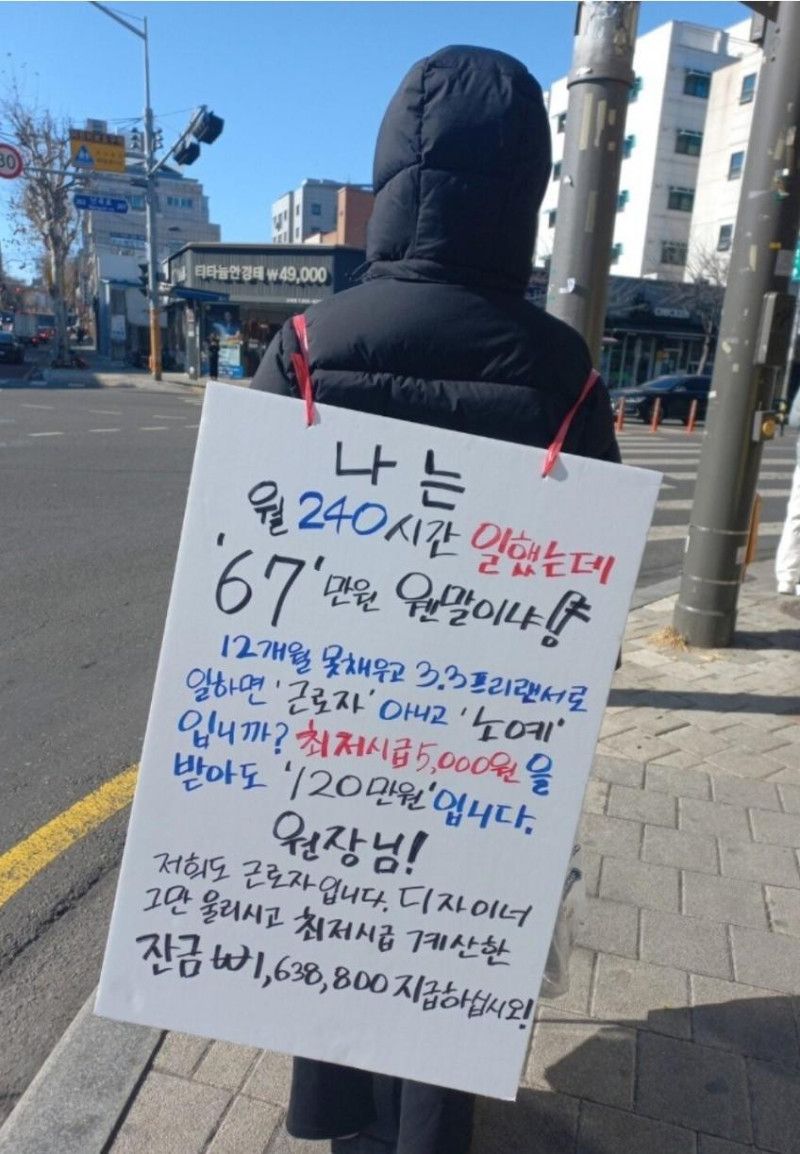 30
티타늄안경테 ₩49,000
CHICKEN
나는
월 240시간 일했는데
'67'만원 웬말이냐!
12개월 못채우고 3.3프리랜서로
일하면 '근로자' 아니고 '노예'
입니까? 최저시급5,000원을
받아도 '120만원'입니다.
원장님!
저희도 근로자입니다. 디자이너
그만 울리시고 최저시급 계산한
잔금 ₩1,638,800 지급하십시오!